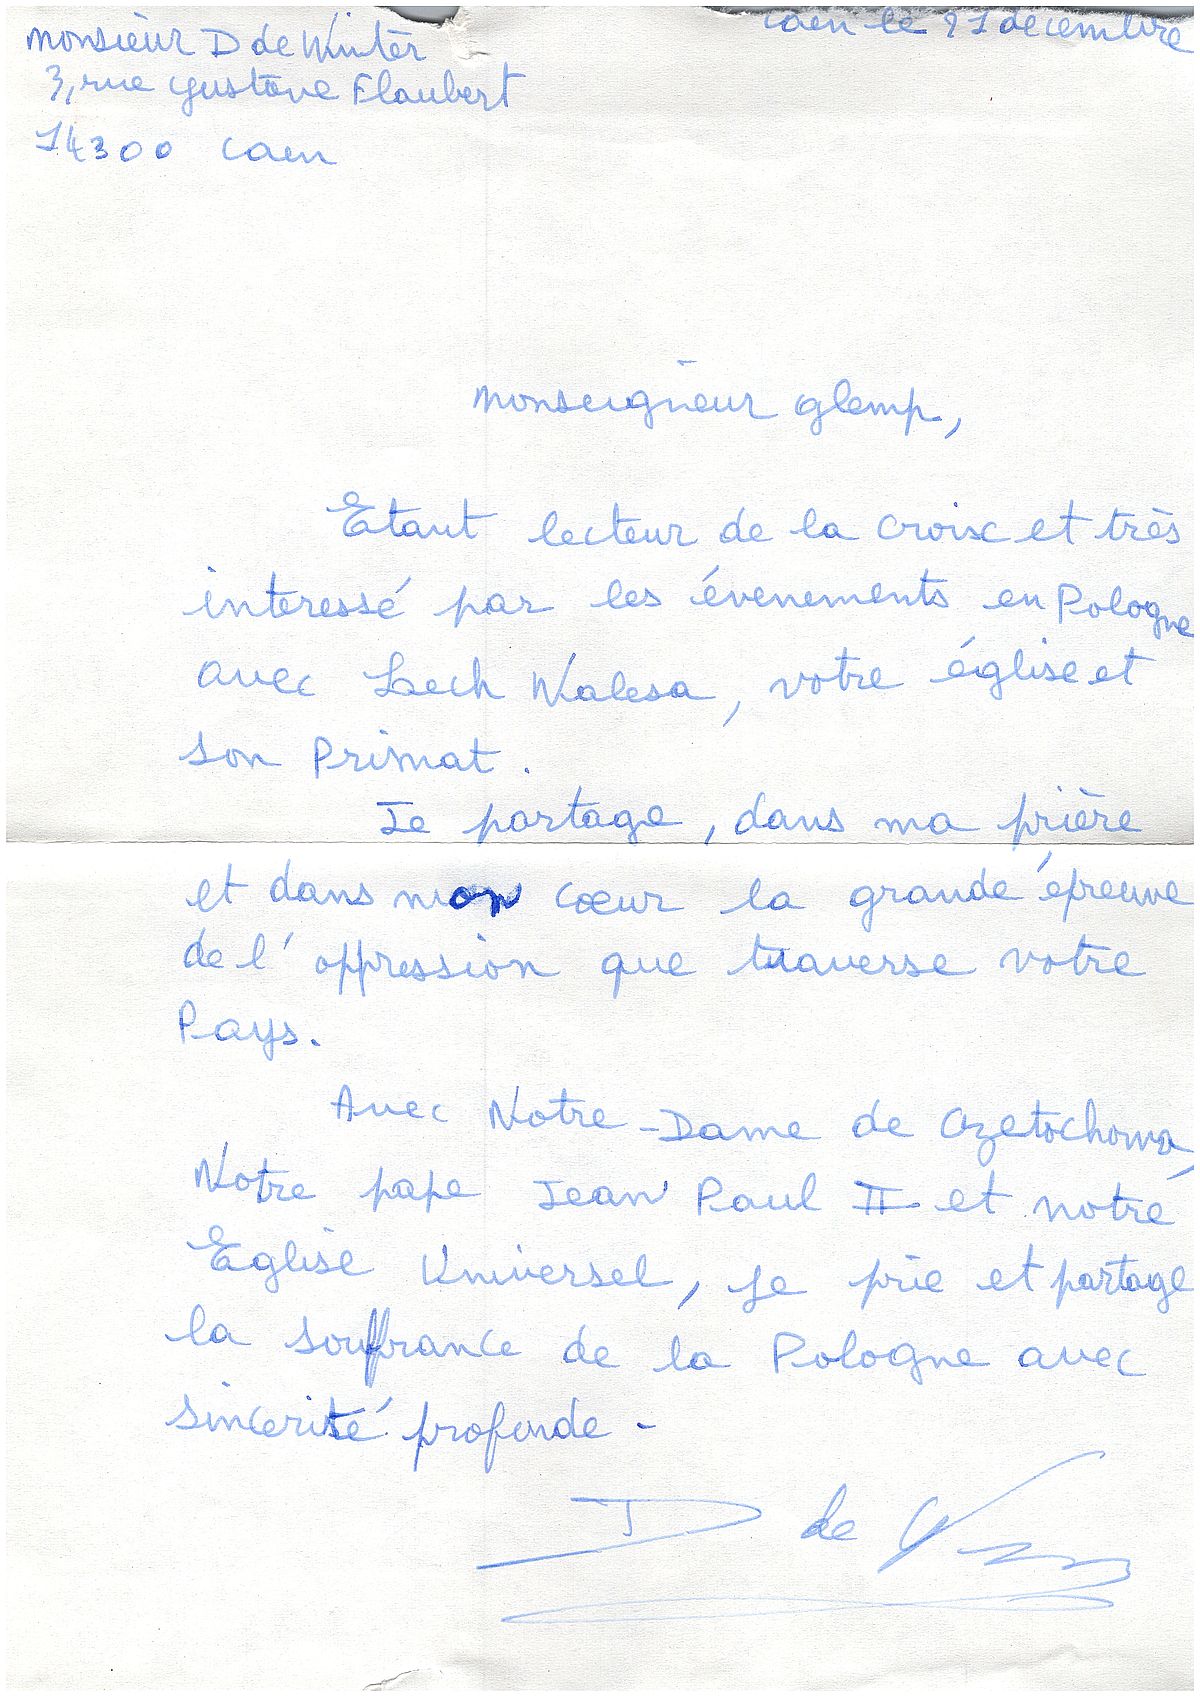 monsieur D de Winter
3, rue Gustave Flaubert
14300 Caen
Caen le 21 decembre
Monseigneur Glemp,
Etant lecteur de la Croix et très
interessé par les évenements en Pologne
avec Lech Walesa, votre église et
son Primat.
Je partage, dans ma prière
et dans mon coeur la grande épreuve
de l'oppression que traverse votre
Pays.
Avec Notre-Dame de Czetochowa,
Notre pape Jean Paul II et notre
Eglise Universel, je prie et partage
la souffrance de la Pologne avec
sincerité profonde -
D de W